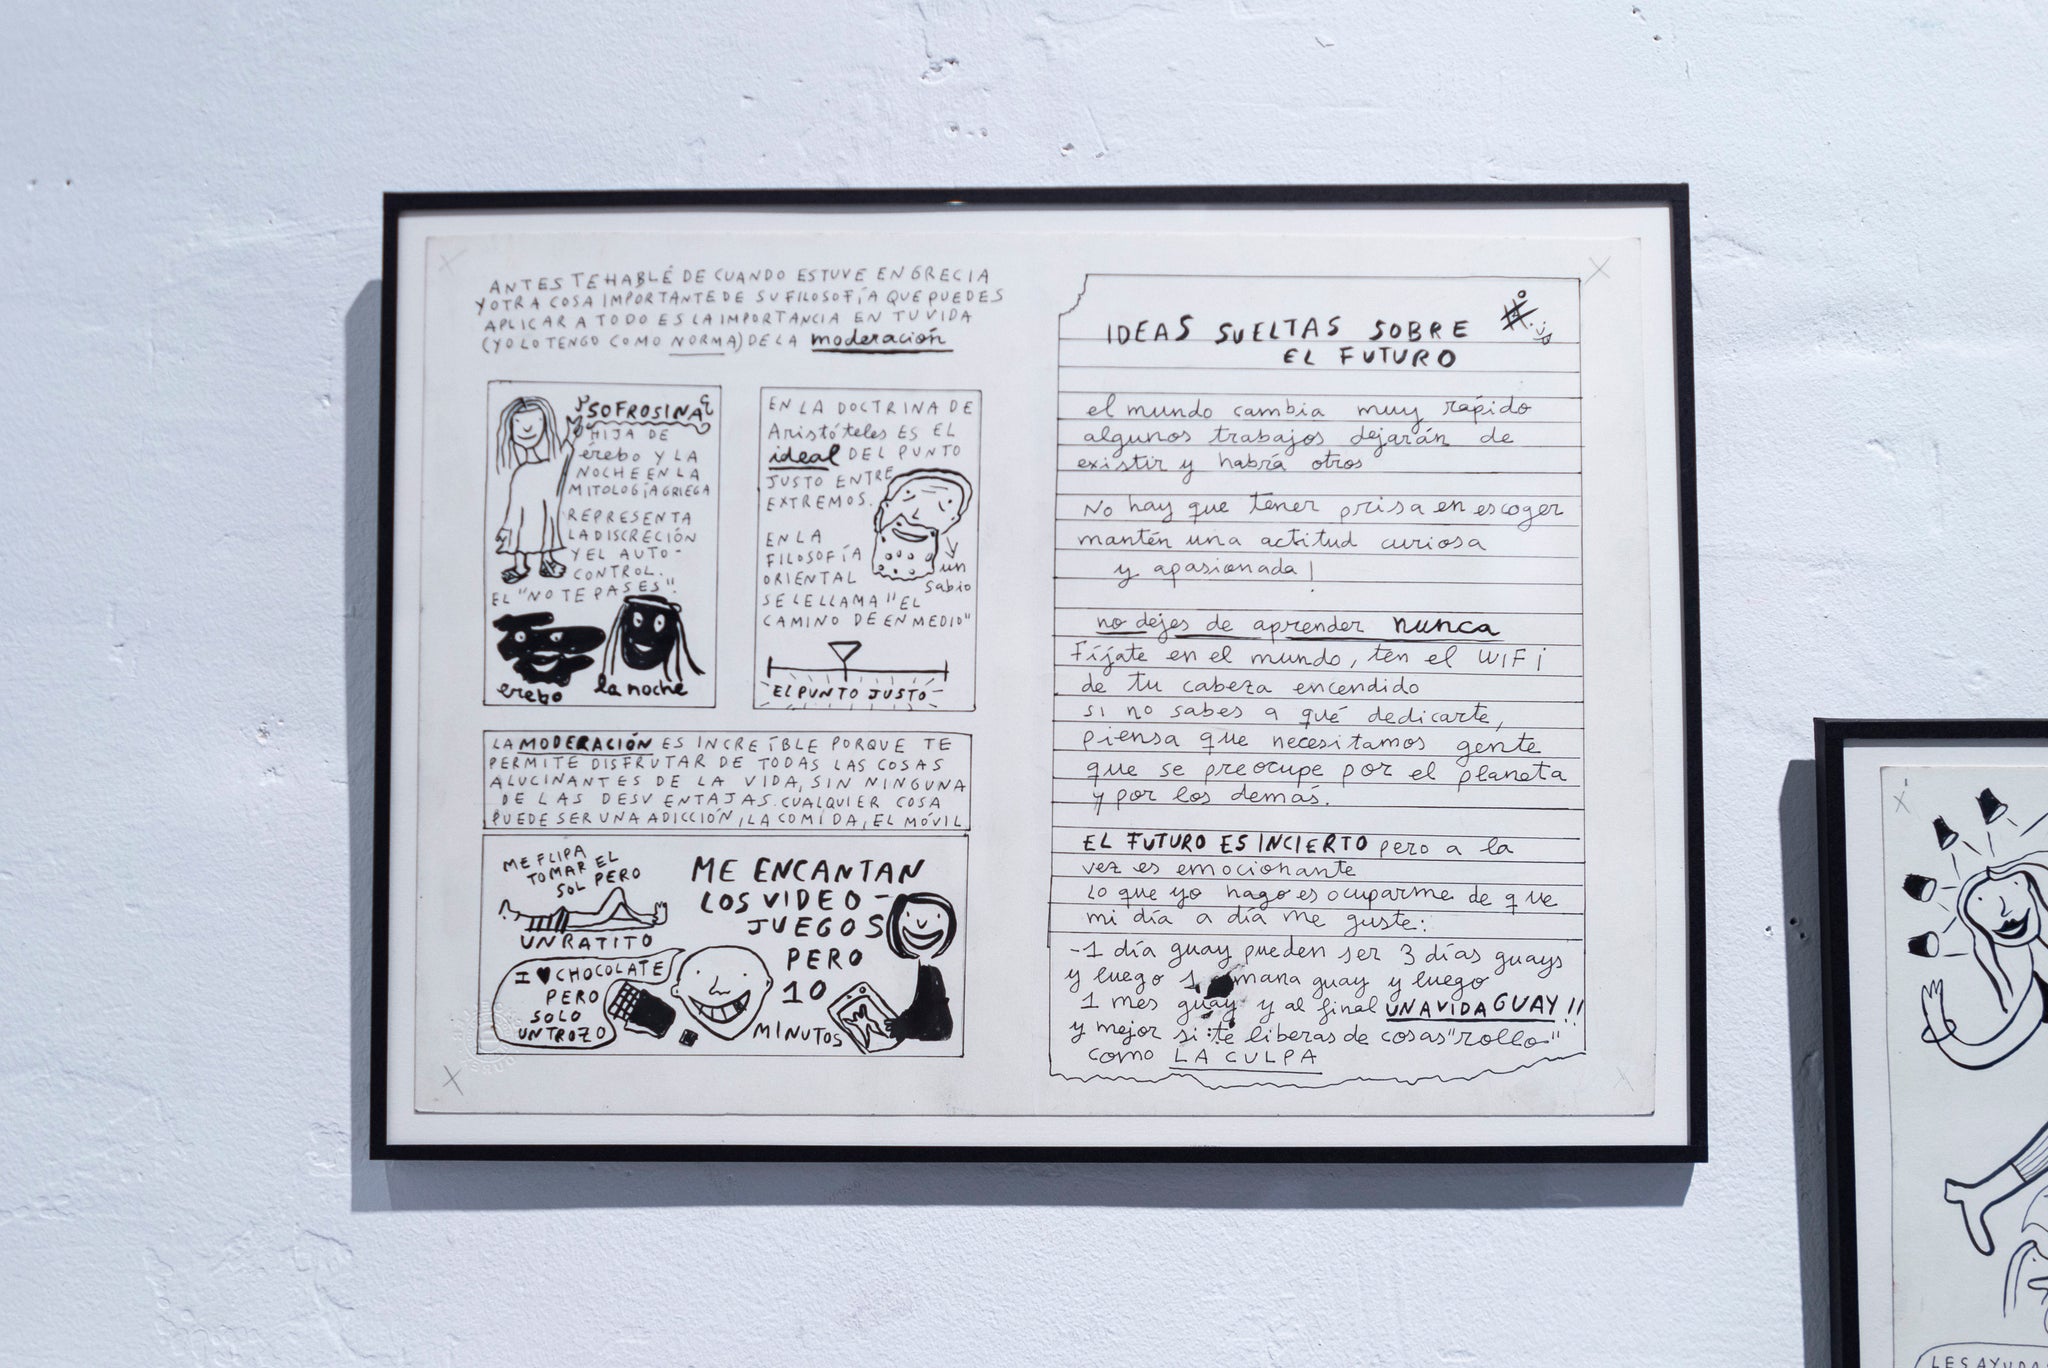 ANTES TE HABLÉ DE CUANDO ESTUVE EN GRECIA
Y OTRA COSA IMPORTANTE DE SU FILOSOFÍA QUE PUEDES
APLICAR A TODO ES LA IMPORTANCIA EN TU VIDA
(YO LO TENGO COMO NORMA) DE LA moderación
SOFROSINA
HIJA DE
érebo Y LA
NOCHE EN LA
MITOLOGÍA GRIEGA
REPRESENTA
LA DISCRECIÓN
Y EL AUTO-
CONTROL.
EL "NO TE PASES".
erebo
la noche
EN LA DOCTRINA DE
Aristóteles ES EL
ideal DEL PUNTO
JUSTO ENTRE
EXTREMOS.
EN LA
FILOSOFÍA
ORIENTAL
SE LE LLAMA "EL
CAMINO DE EN MEDIO"
un
sabio
EL PUNTO JUSTO
LA MODERACIÓN ES INCREÍBLE PORQUE TE
PERMITE DISFRUTAR DE TODAS LAS COSAS
ALUCINANTES DE LA VIDA, SIN NINGUNA
DE LAS DESVENTAJAS. CUALQUIER COSA
PUEDE SER UNA ADICCIÓN, LA COMIDA, EL MÓVIL
ME FLIPA
TOMAR EL
SOL PERO
UN RATITO
ME ENCANTAN
LOS VIDEO-
JUEGOS
PERO
10
MINUTOS
I ♥ CHOCOLATE
PERO
SOLO
UN TROZO
IDEAS SUELTAS SOBRE
EL FUTURO
el mundo cambia muy rápido
algunos trabajos dejarán de
existir y habrá otros
No hay que tener prisa en escoger
mantén una actitud curiosa
y apasionada!
no dejes de aprender nunca
Fíjate en el mundo, ten el WIFI
de tu cabeza encendido
si no sabes a qué dedicarte,
piensa que necesitamos gente
que se preocupe por el planeta
y por los demás.
EL FUTURO ES INCIERTO pero a la
vez es emocionante
Lo que yo hago es ocuparme de que
mi día a día me guste:
-1 día guay pueden ser 3 días guays
y luego 1 mana guay y luego
1 mes guay y al final UNA VIDA GUAY!!
y mejor si te liberas de cosas "rollo"
como LA CULPA